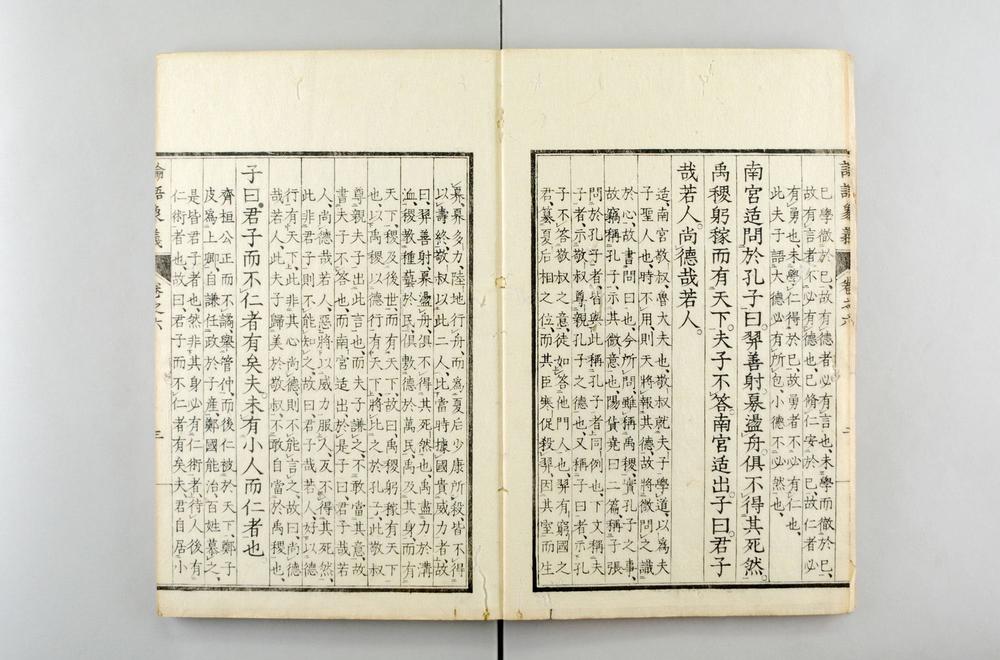 已學徴於已、故有德者必有言也、未學而徴於已、
故有言者不必有德也、已脩仁安於已、故仁者必
有勇也、未學仁得於已、故勇者不必有仁也、
此夫子語大德必有所包小德不必然也、
南宮适問於孔子曰。羿善射。奡盪舟。俱不得其死然。
禹稷躬稼而有天下。夫子不答。南宮适出。子曰。君子
哉若人。尚德哉若人。
适、南宮敬叔、魯大夫也、敬叔就夫子學道、以爲夫
子聖人也、時不用、則天將報其德、故將徴問之識
於心、故書問曰也、今所問雖稱禹稷、實孔子之事、
故竊稱孔子、示其徴意也、陽貨、堯曰二篇、稱子張
問於孔子者、皆與此稱孔子者同例也、下文稱夫
子者、示敬叔尊親孔子之德也、又稱子曰者、示孔
子不答敬叔之意、徒如答他門人也、羿有窮國之
君、簒夏后相之位、而其臣寒促殺羿、因其室而生
奡、奡多力、陸地行舟、而爲夏后少康所殺、皆不得
以壽終、敬叔以此二人、比當時據國貴威力者、故
曰、羿善射、奡盪舟、俱不得其死然也、禹盡力於溝
洫、稷教種蓺於民、俱敷德於萬民、禹及其身而有
天下、稷及後世而有天下、故曰、禹稷躬稼有天下
也、以禹稷以德行有天下、將比之於孔子、此敬叔
尊親夫子、出此言也、而夫子謙之、不敢當其意、故
書夫子不答也、而南宮适出、於是子曰、君子哉若
人、尚德哉若人、惡將以威力服人、反不得其死然、
此非君子則不能知之、故曰、君子哉若人、好以德
行有天下、此非其心尚德、則不能言之、故曰、尚德
哉若人、此夫子歸美於敬叔、不敢自當於禹稷也、
子曰。君子而不仁者有矣夫。未有小人而仁者也
齊桓公正而不譎、擧管仲、而後仁被於天下、鄭子
皮爲上卿、自謙任政於子產、鄭國能治、百姓慕之、
是皆君子者也、然非其身必有仁術者、待人後有
仁術者也、故曰、君子而不仁者有矣夫、君自居小
論語象義 卷之六 三